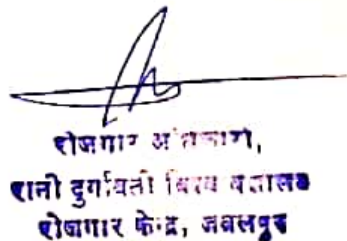 रोजगार अधिकारी,
रानी दुर्गावती विश्व विद्यालय
रोजगार केन्द्र, जबलपुर